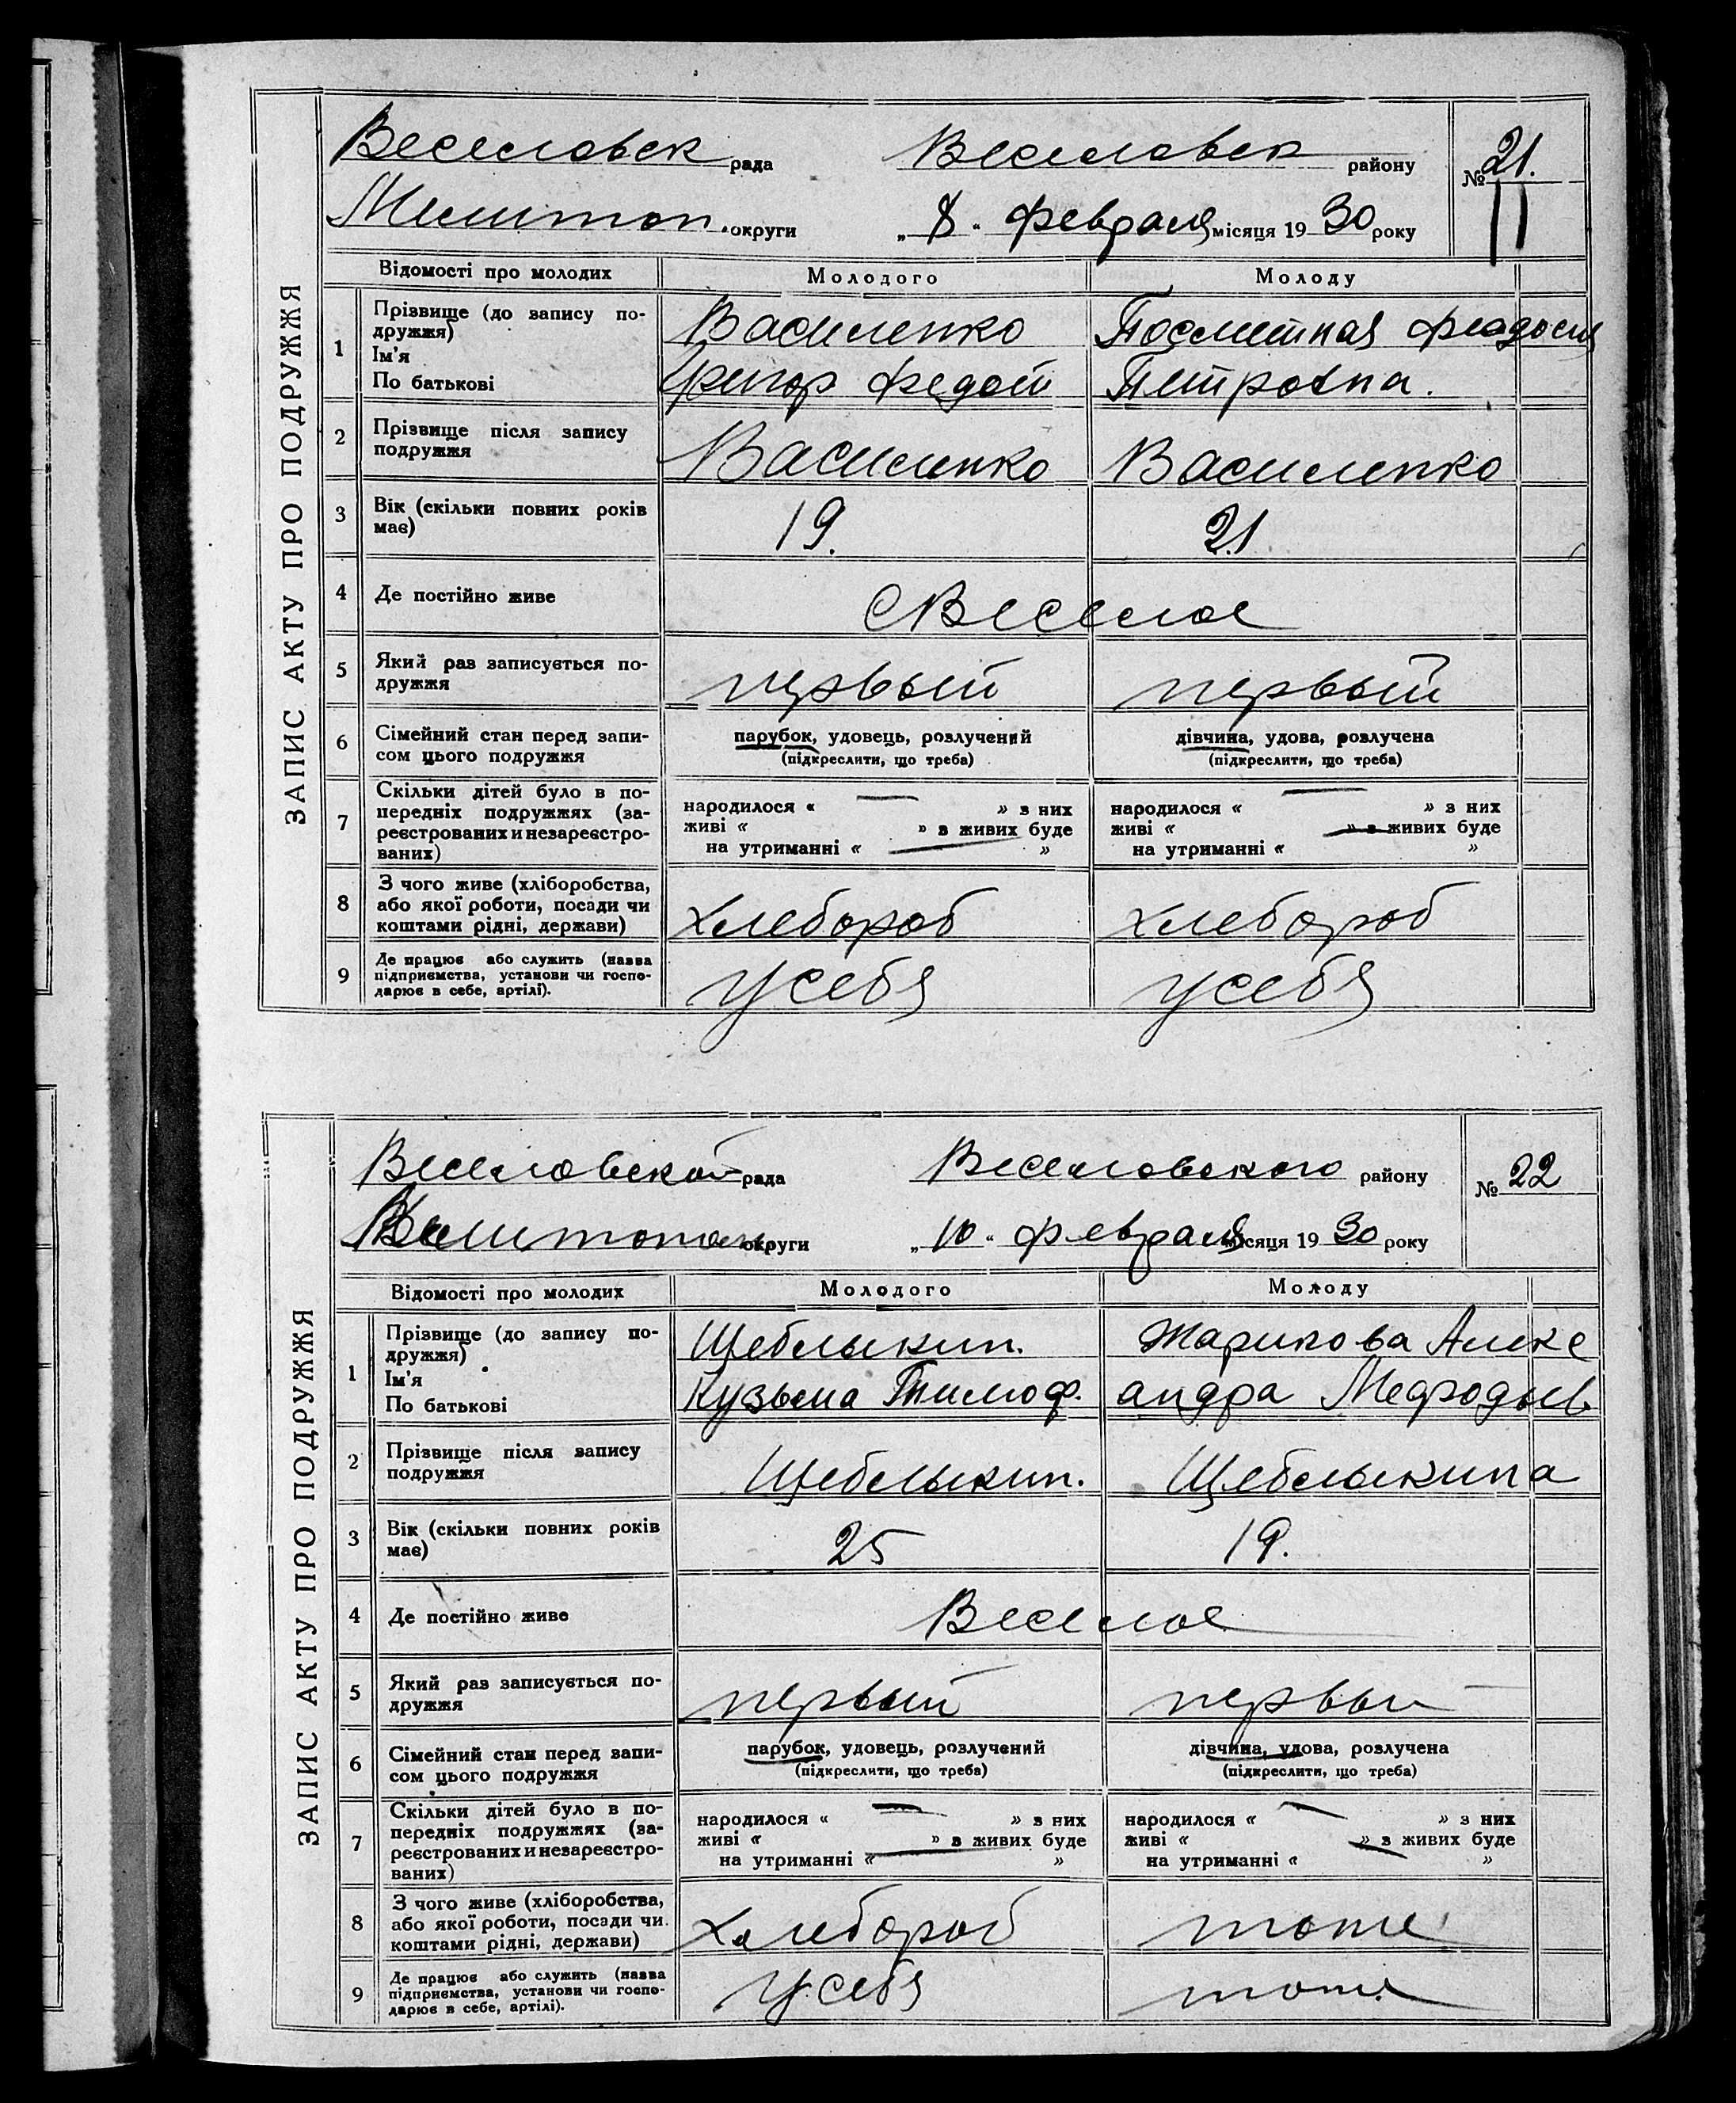 ЗАПИС АКТУ ПРО ПОДРУЖЖЯ
Веселовск рада Веселовск району № 21.
Мелитоп. округи „ 8 “ февраля місяця 19 30 року
Відомості про молодих Молодого Молоду
1 Прізвище (до запису по-
дружжя)
Ім'я
По батькові
Василенко
Григор Федот
Посметная Феадосия
Петровна.
2 Прізвище після запису
подружжя
Василенко Василенко
3 Вік (скільки повних років
має)
19. 21
4 Де постійно живе
с Веселое
5 Який раз записується по-
дружжя
первый первый
6 Сімейний стан перед запи-
сом цього подружжя
парубок, удовець, розлучений
(підкреслити, що треба)
дівчина, удова, розлучена
(підкреслити, що треба)
7 Скільки дітей було в по-
передніх подружжях (за-
реєстрованих и незареєстро-
ваних)
народилося « — » з них
живі « » в живих буде
на утриманні « — »
народилося « — » з них
живі « » в живих буде
на утриманні « »
8 З чого живе (хліборобства,
або якої роботи, посади чи
коштами рідні, держави)
хлебороб хлебороб
9 Де працює або служить (назва
підприємства, установи чи госпо-
дарює в себе, артілі).
у себя у себя
ЗАПИС АКТУ ПРО ПОДРУЖЖЯ
Веселовской рада Веселовского району № 22
округи „ 10 “ февраля місяця 19 30 року
Відомості про молодих Молодого Молоду
1 Прізвище (до запису по-
дружжя)
Ім'я
По батькові
Щеблыкин.
Кузьма Тимоф.
Жарикова Алекс
андра Мефодыев
2 Прізвище після запису
подружжя
Щеблыкин. Щеблыкина
3 Вік (скільки повних років
має)
25 19.
4 Де постійно живе
Веселое
5 Який раз записується по-
дружжя
первый первый
6 Сімейний стан перед запи-
сом цього подружжя
парубок, удовець, розлучений
(підкреслити, що треба)
дівчина, удова, розлучена
(підкреслити, що треба)
7 Скільки дітей було в по-
передніх подружжях (за-
реєстрованих и незареєстро-
ваних)
народилося « — » з них
живі « » в живих буде
на утриманні « — »
народилося « — » з них
живі « » в живих буде
на утриманні « »
8 З чого живе (хліборобства,
або якої роботи, посади чи
коштами рідні, держави)
Хлебороб тоже
9 Де працює або служить (назва
підприємства, установи чи госпо-
дарює в себе, артілі).
у себя тоже